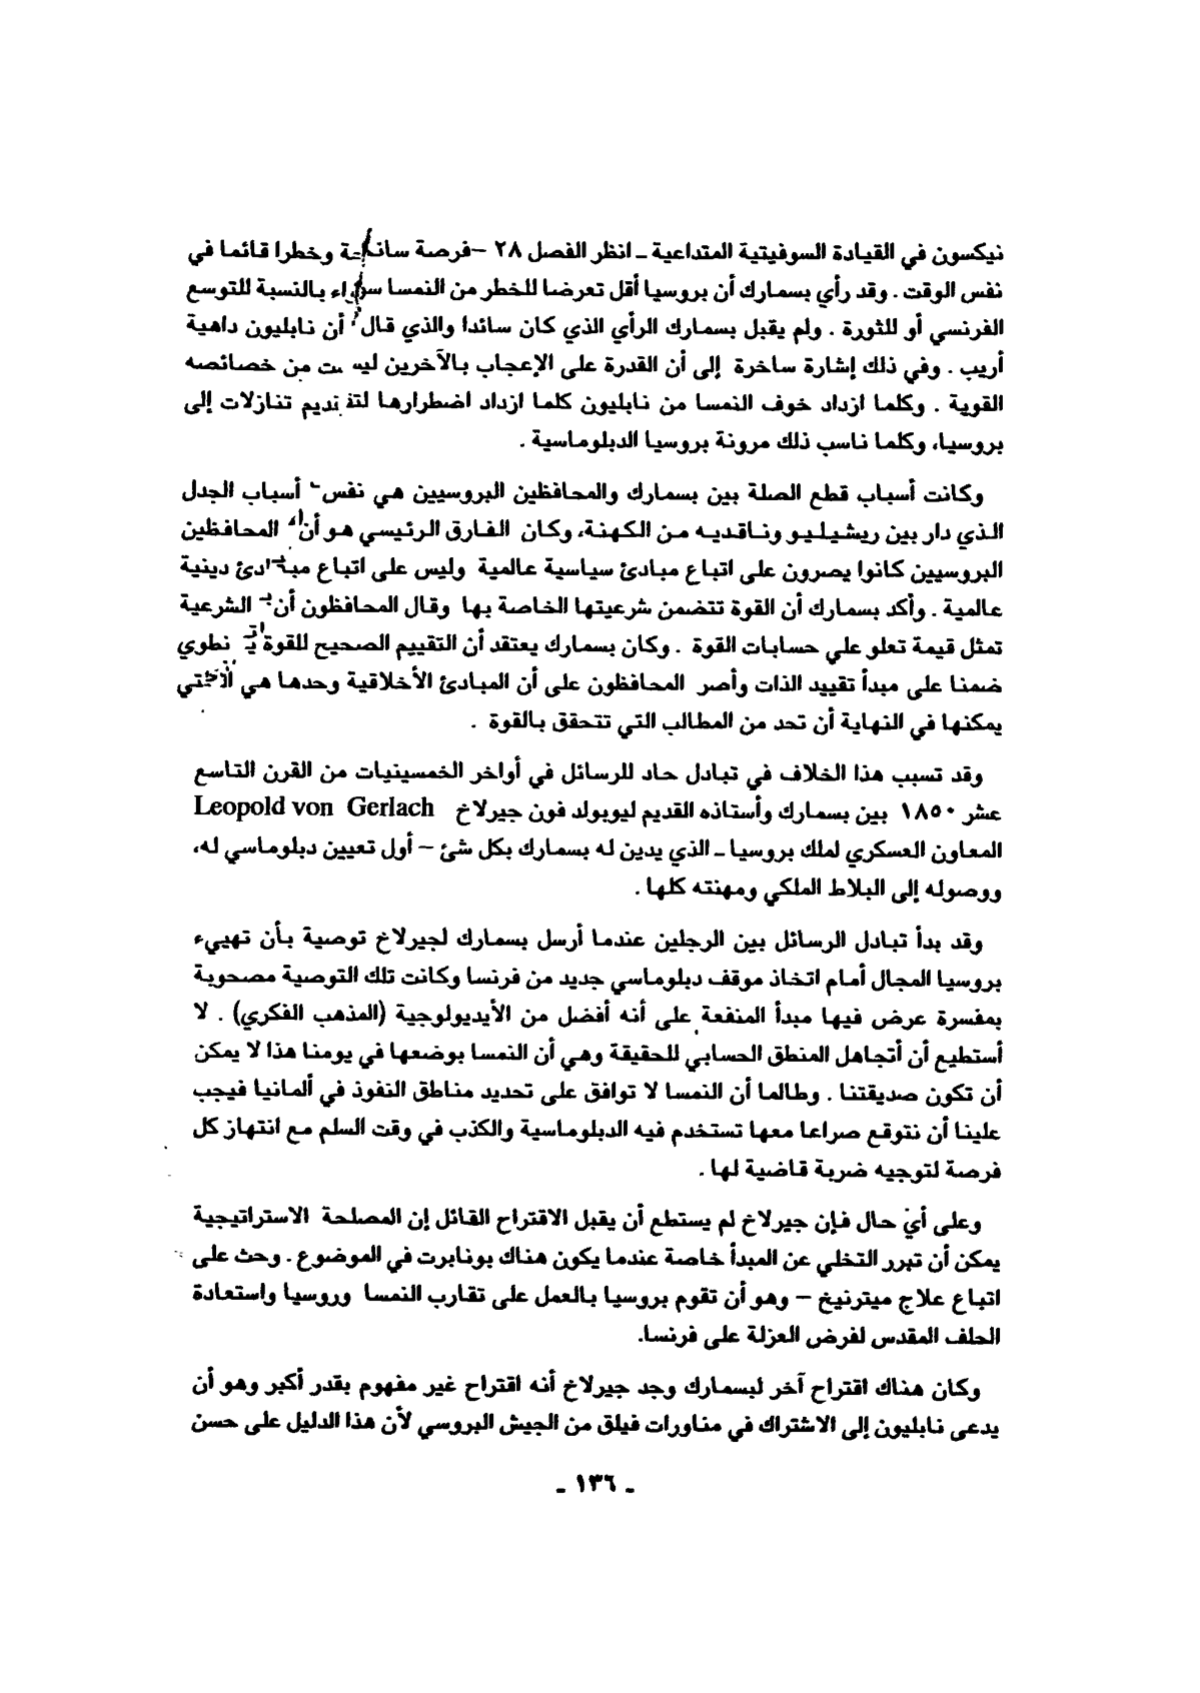 نيكسون في القيادة السوفيتية المتداعية ـ انظر الفصل ٢٨ –فرصة سانحة وخطرا قائما في
نفس الوقت . وقد رأي بسمارك أن بروسيا أقل تعرضا للخطر من النمسا سواء بالنسبة للتوسع
الفرنسي أو للثورة . ولم يقبل بسمارك الرأي الذي كان سائدا والذي قال أن نابليون داهية
أريب . وفي ذلك إشارة ساخرة إلى أن القدرة على الإعجاب بالآخرين ليست من خصائصه
القوية . وكلما ازداد خوف النمسا من نابليون كلما ازداد اضطرارها لتقديم تنازلات إلى
بروسيا، وكلما ناسب ذلك مرونة بروسيا الدبلوماسية .
وكانت أسباب قطع الصلة بين بسمارك والمحافظين البروسيين هي نفس أسباب الجدل
الذي دار بين ريشيليو وناقديه من الكهنة، وكان الفارق الرئيسي هو أن المحافظين
البروسيين كانوا يصرون على اتباع مبادئ سياسية عالمية وليس على اتباع مبادئ دينية
عالمية . وأكد بسمارك أن القوة تتضمن شرعيتها الخاصة بها وقال المحافظون أن الشرعية
تمثل قيمة تعلو علي حسابات القوة . وكان بسمارك يعتقد أن التقييم الصحيح للقوة ينطوي
ضمنا على مبدأ تقييد الذات وأصر المحافظون على أن المبادئ الأخلاقية وحدها هي التي
يمكنها في النهاية أن تحد من المطالب التي تتحقق بالقوة .
وقد تسبب هذا الخلاف في تبادل حاد للرسائل في أواخر الخمسينيات من القرن التاسع
عشر ١٨٥٠ بين بسمارك وأستاذه القديم ليوبولد فون جيرلاخ Leopold von Gerlach
المعاون العسكري لملك بروسيا ـ الذي يدين له بسمارك بكل شئ – أول تعيين دبلوماسي له،
ووصوله إلى البلاط الملكي ومهنته كلها .
وقد بدأ تبادل الرسائل بين الرجلين عندما أرسل بسمارك لجيرلاخ توصية بأن تهييء
بروسيا المجال أمام اتخاذ موقف دبلوماسي جديد من فرنسا وكانت تلك التوصية مصحوبة
بمفسرة عرض فيها مبدأ المنفعة على أنه أفضل من الأيديولوجية (المذهب الفكري) . لا
أستطيع أن أتجاهل المنطق الحسابي للحقيقة وهي أن النمسا بوضعها في يومنا هذا لا يمكن
أن تكون صديقتنا . وطالما أن النمسا لا توافق على تحديد مناطق النفوذ في ألمانيا فيجب
علينا أن نتوقع صراعا معها تستخدم فيه الدبلوماسية والكذب في وقت السلم مع انتهاز كل
فرصة لتوجيه ضربة قاضية لها .
وعلى أيّ حال فإن جيرلاخ لم يستطع أن يقبل الاقتراح القائل إن المصلحة الاستراتيجية
يمكن أن تبرر التخلي عن المبدأ خاصة عندما يكون هناك بونابرت في الموضوع . وحث على
اتباع علاج ميترنيخ – وهو أن تقوم بروسيا بالعمل على تقارب النمسا وروسيا واستعادة
الحلف المقدس لفرض العزلة على فرنسا.
وكان هناك اقتراح آخر لبسمارك وجد جيرلاخ أنه اقتراح غير مفهوم بقدر أكبر وهو أن
يدعى نابليون إلى الاشتراك في مناورات فيلق من الجيش البروسي لأن هذا الدليل على حسن
ـ ١٣٦ ـ